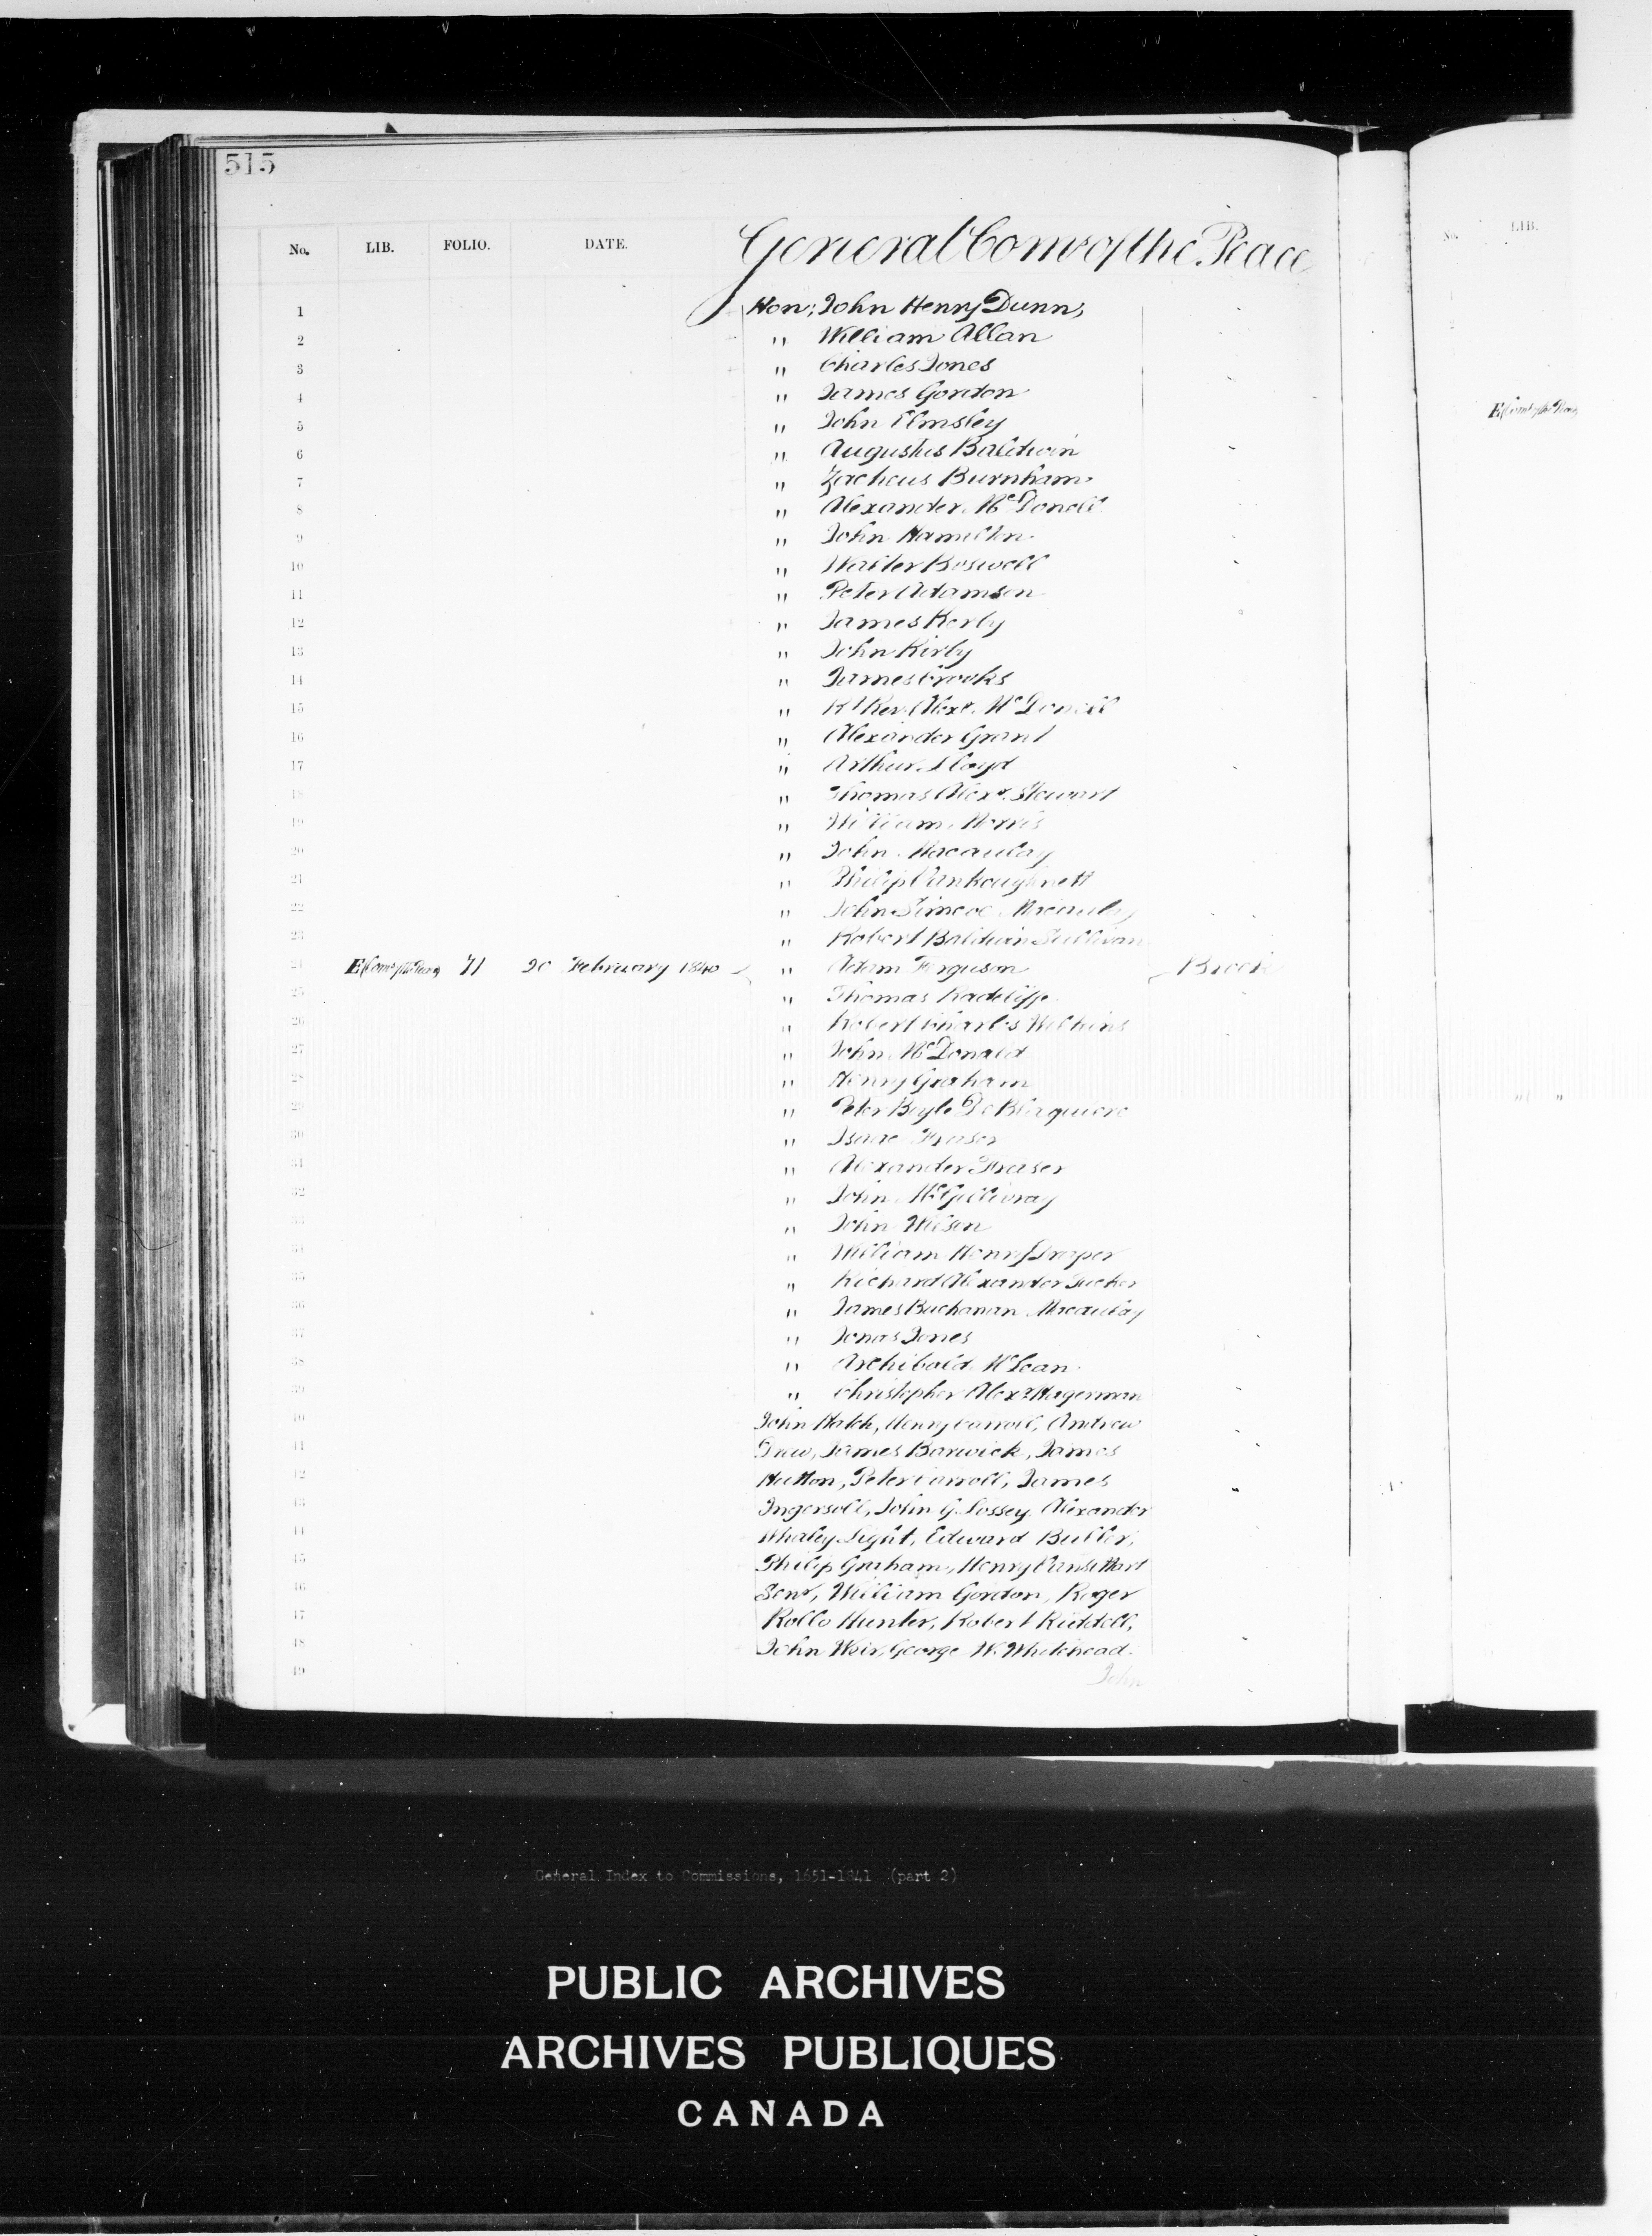 515
No. LIB. FOLIO. DATE. General Coms of the Peace
1 Hon: John Henry Dunn,
2 " William Allan
3 " Charles Jones
4 " James Gordon
5 " John Elmsley
6 " Augustus Baldwin
7 " Zacheus Burnham
8 " Alexander McDonell
9 " John Hamilton
10 " Walter Boswell
11 " Peter Adamson
12 " James Kerby
13 " John Kirby
14 " James Crooks
15 " Rt Rev. Alexr. McDonell
16 " Alexander Grant
17 " Arthur Lloyd
18 " Thomas Alexr. Stewart
19 " William Morris
20 " John Macaulay
21 " Philip Vankoughnett
22 " John Simcoe Macaulay
23 " Robert Baldwin Sullivan
24 E (Coms of the Peace) 71 20 February 1840 " Adam Ferguson Brock
25 " Thomas Radcliffe
26 " Robert Charles Wilkins
27 " John McDonald
28 " Henry Graham
29 " Peter Boyle De Blaquiere
30 " Isaac Fraser
31 " Alexander Fraser
32 " John McGillivray
33 " John Wilson
34 " William Henry Draper
35 " Richard Alexander Tucker
36 " James Buchanan Macaulay
37 " Jonas Jones
38 " Archibald McLean
39 " Christopher Alexr Hagerman
40 John Hatch, Henry Carroll, Andrew
41 Drew, James Barwick, James
42 Hutton, Peter Carroll, James
43 Ingersoll, John G. Lossey, Alexander
44 Whaley Light, Edward Buller,
45 Philip Graham, Henry Vansittart
46 Senr, William Gordon, Roger
47 Rollo Hunter, Robert Riddell,
48 John Weir, George W. Whitehead.
49 John
No. LIB.
E (Coms of the Peace)
" "
General Index to Commissions, 1651-1841 (part 2)
PUBLIC ARCHIVES
ARCHIVES PUBLIQUES
CANADA